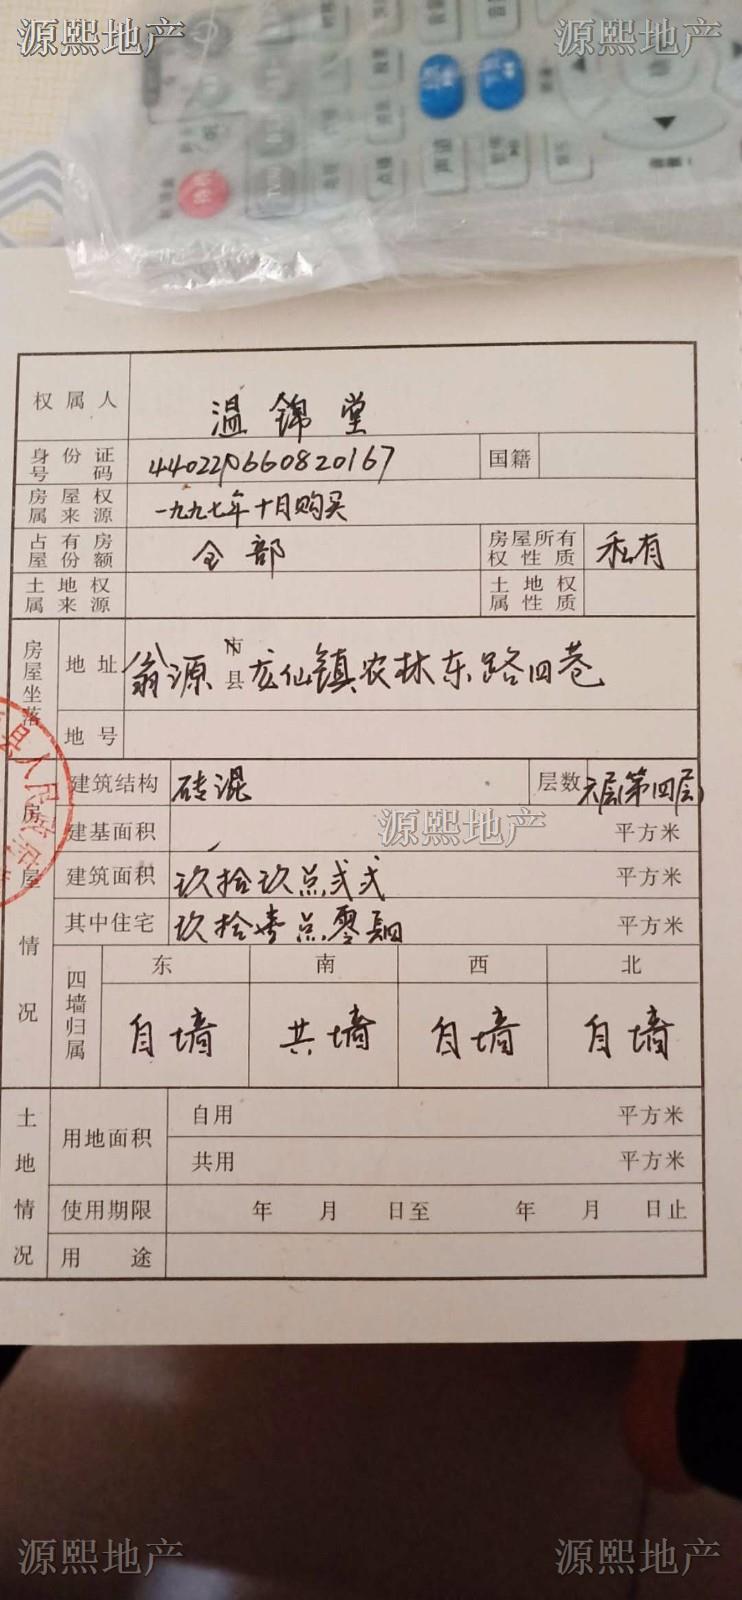 源熙地产
源熙地产
权属人 温锦堂
身份证号码 440229660820167 国籍
房屋权属来源 一九九七年十月购买
占有房屋份额 全部 房屋所有权性质 私有
土地权属来源 土地权属性质
房屋坐落 地址 翁源市县龙仙镇农林东路四巷
地号
房屋情况 建筑结构 砖混 层数 六层(第四层)
建基面积 平方米
源熙地产
建筑面积 玖拾玖点弍弍 平方米
其中住宅 玖拾壹点零 平方米
四墙归属 东 南 西 北
自墙 共墙 自墙 自墙
土地情况 用地面积 自用 平方米
共用 平方米
使用期限 年 月 日至 年 月 日止
用途
县人民政府
源熙地产
源熙地产